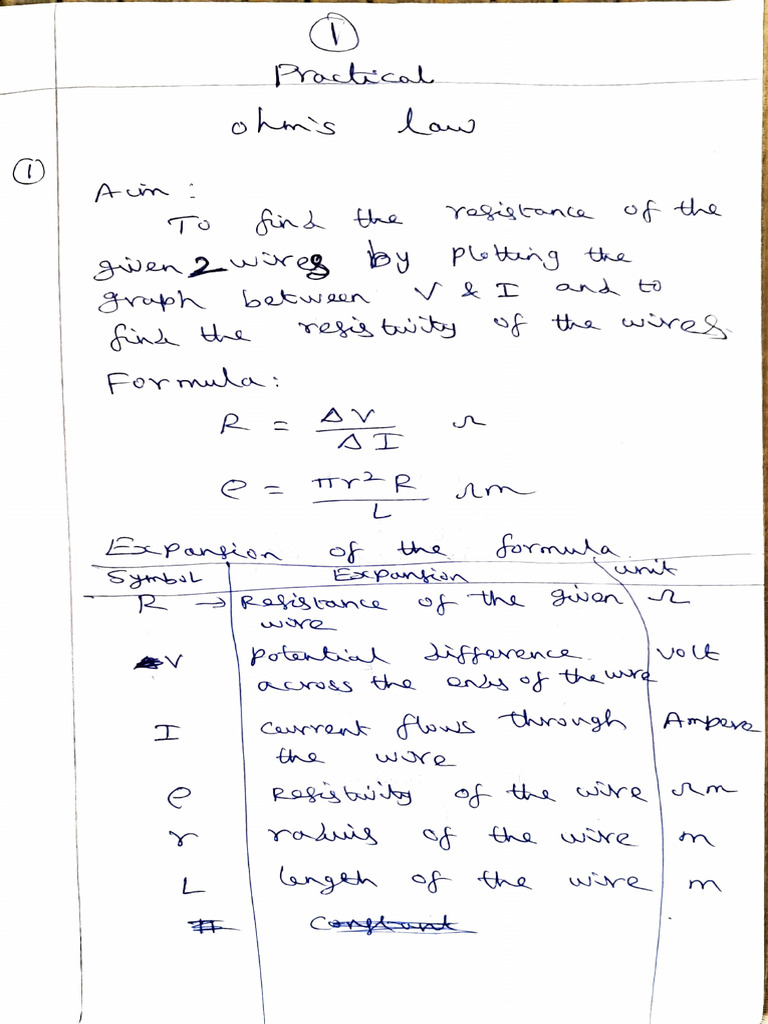 ①
Practical
ohm's law
①
Aim :
To find the resistance of the
given 2 wires by plotting the
graph between V & I and to
find the resistivity of the wires.
Formula:
R = ΔV / ΔI Ω
ρ = πr² R / L Ωm
Expansion of the formula
Symbol Expansion unit
R → Resistance of the given Ω
wire
V potential difference volt
across the ends of the wire
I current flows through Ampere
the wire
ρ Resistivity of the wire Ωm
r radius of the wire m
L length of the wire m
Constant